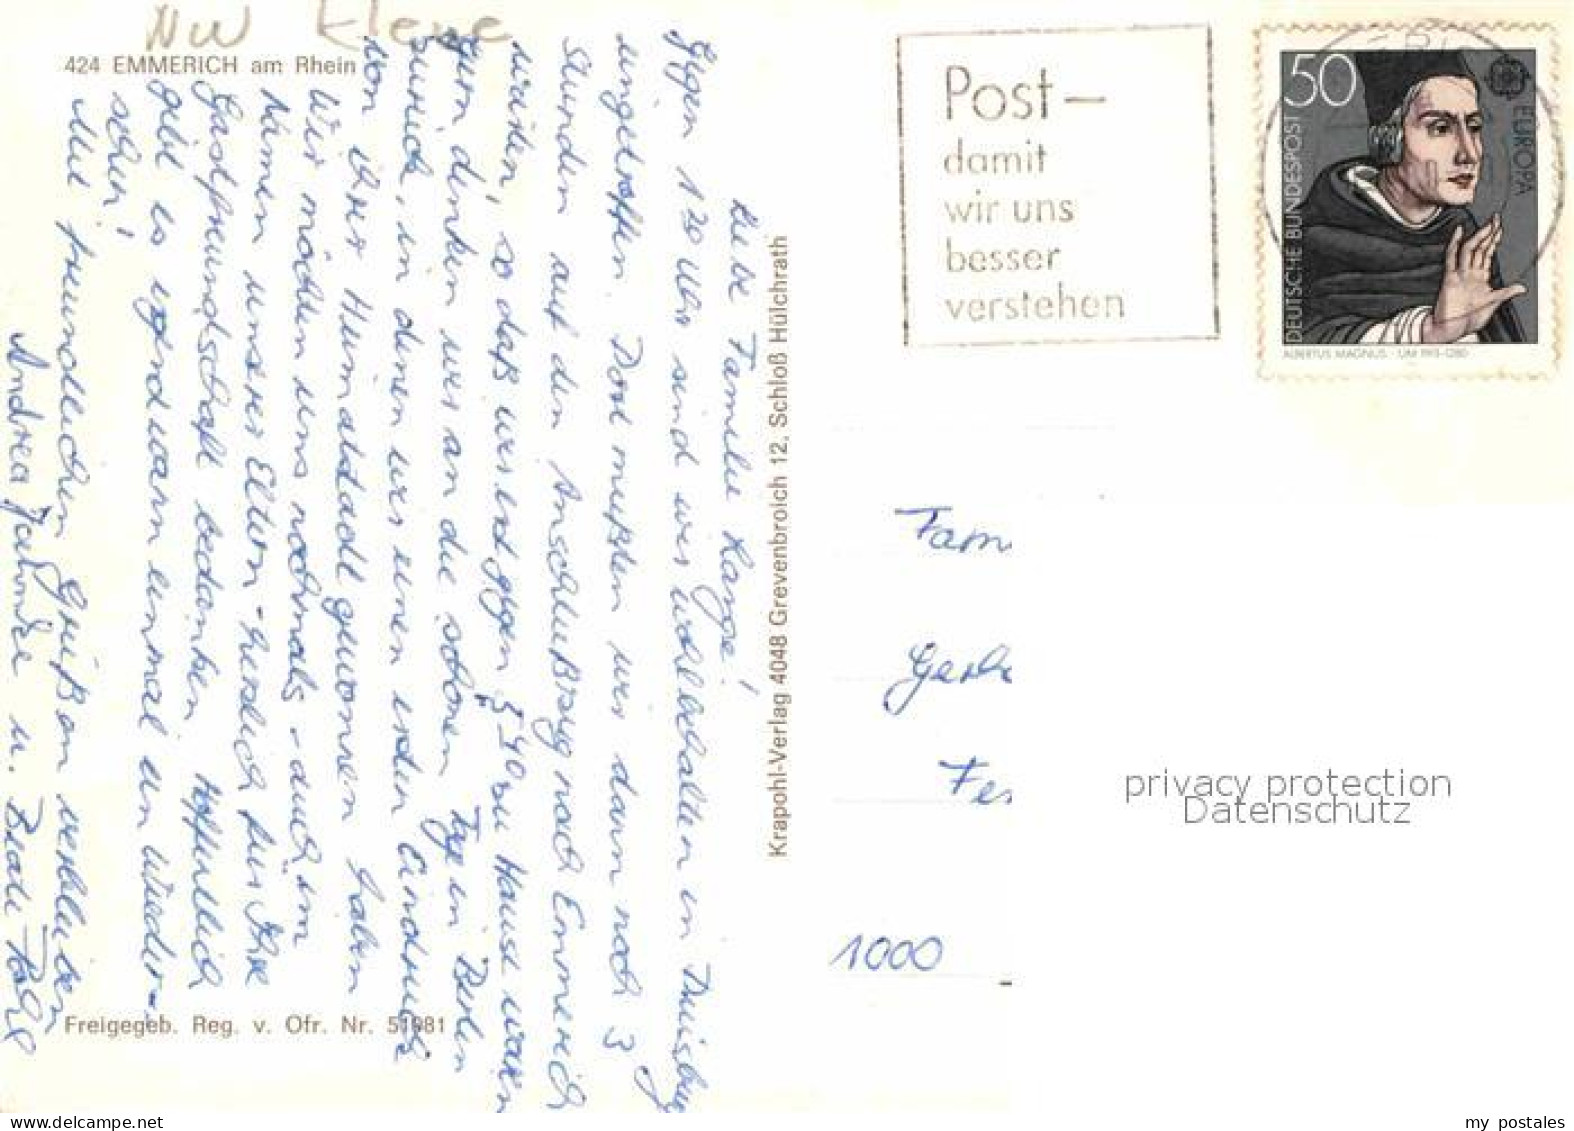 NW Kleve
424 EMMERICH am Rhein
Liebe Familie Lange!
Gegen 1 30 Uhr sind wir wohlbehalten in Duisburg
eingetroffen. Dort mußten wir dann noch 3
Stunden auf den Anschlußzug nach Emmerich
warten, so daß wir erst gegen 5 40 zu Hause waren
Gern denken wir an die schönen Tage in Berlin
zurück, in denen wir einen ersten Eindruck
von ihrer Heimatstadt gewonnen haben
Wir möchten uns nochmals - auch im
Namen unserer Eltern - herzlich für Ihre
Gastfreundschaft bedanken. Hoffentlich
gibt es irgendwann einmal ein Wieder-
sehen!
Mit freundlichen Grüßen verbleiben
Andrea u. Beate
Freigegeb. Reg. v. Ofr. Nr. 51981
Krapohl-Verlag 4048 Grevenbroich 12, Schloß Hülchrath
Post –
damit
wir uns
besser
verstehen
50
DEUTSCHE BUNDESPOST
EUROPA
ALBERTUS MAGNUS · UM 1193-1280
Fam
Gerb
Fer
1000
privacy protection
Datenschutz
my postales